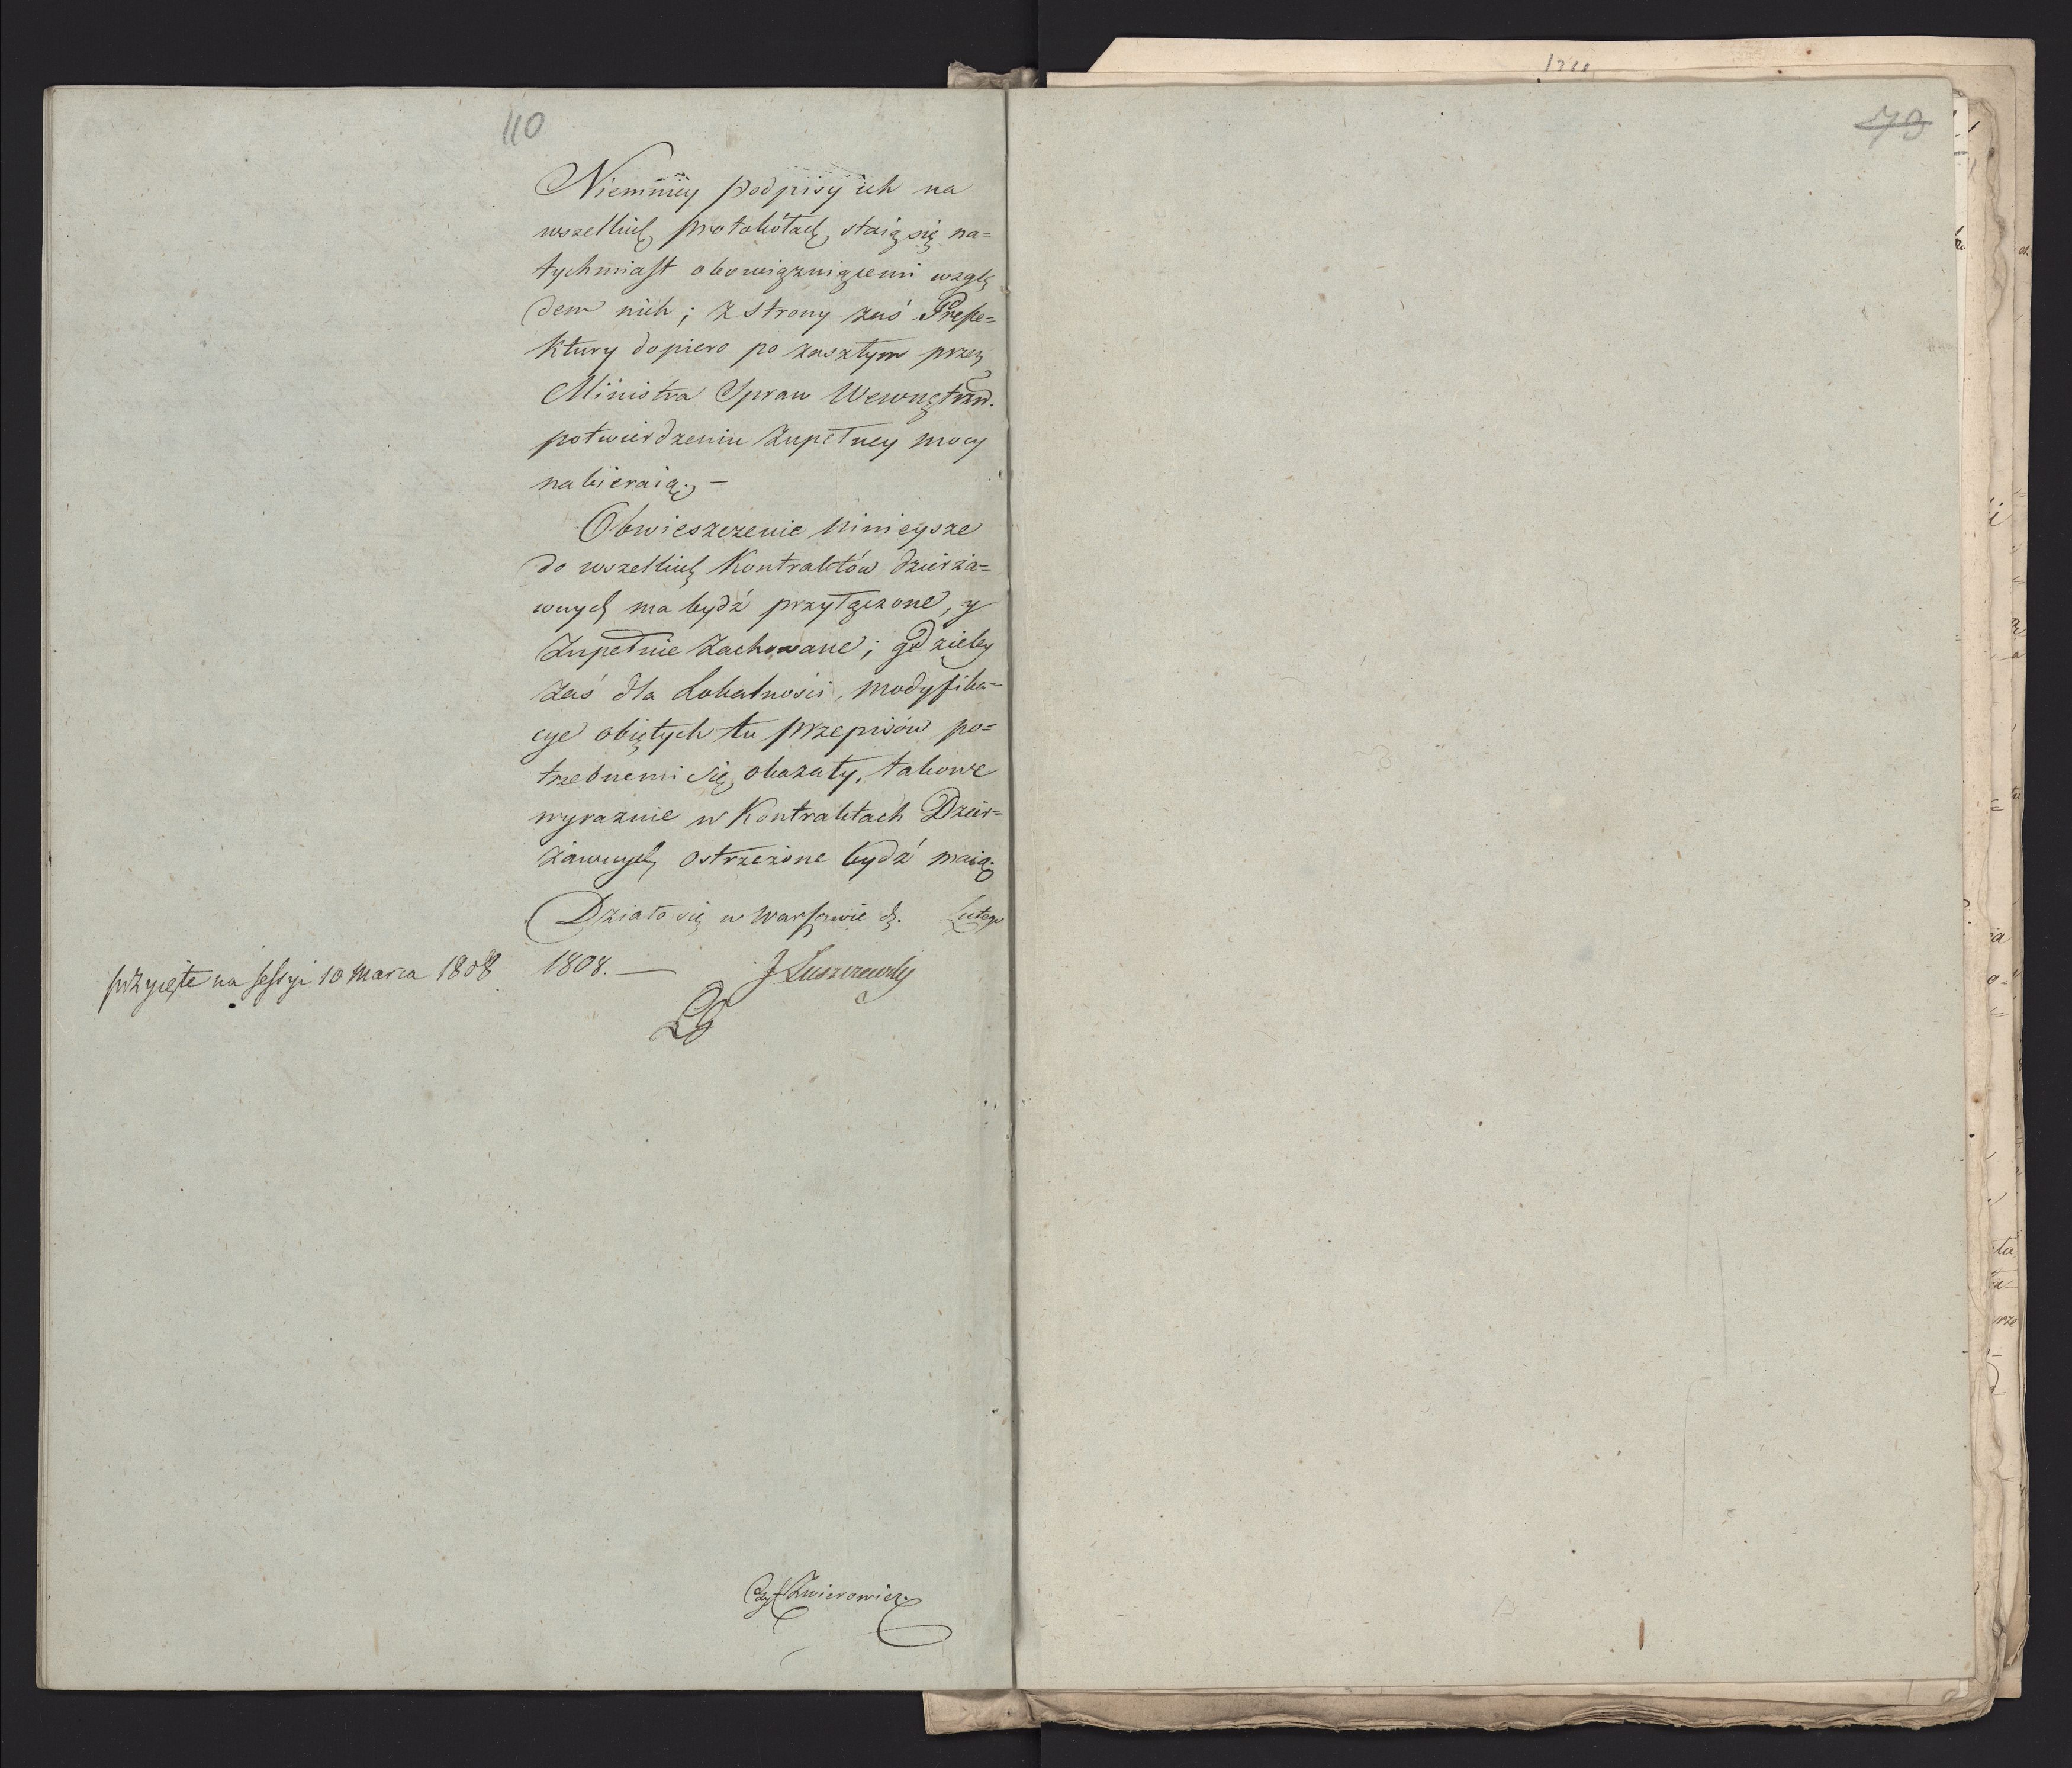 110
Niemniey podpisy ich na
wszelkich protokółach staią się na=
tychmiast obowiązuiącemi wzglę
dem nich; z strony zaś Prefe=
ktury dopiero po zaszłym przez
Ministra Spraw Wewnętrzn.
potwierdzeniu zupełney mocy
nabieraią. —
Obwieszczenie ninieysze
do wszelkich Kontraktów dzierża=
wnych ma bydź przyłączone, y
zupełnie zachowane; gdzieby
zaś dla Lokalności, modyfika=
cye obiętych tu przepisów po=
trzebnemi się okazały, takowe
wyraznie w Kontraktach Dzier=
żawnych ostrzeżone bydź maią.
Działo się w Warszawie d. Lutego
1808. —
J Łuszczewsky
przyięte na sessyi 10 Marca 1808
Zwierowicz
79